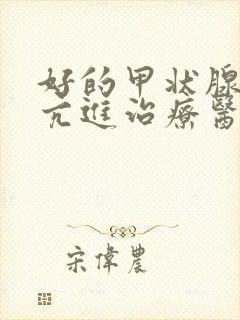 好的甲状腺
亢進治療醫
宋偉農